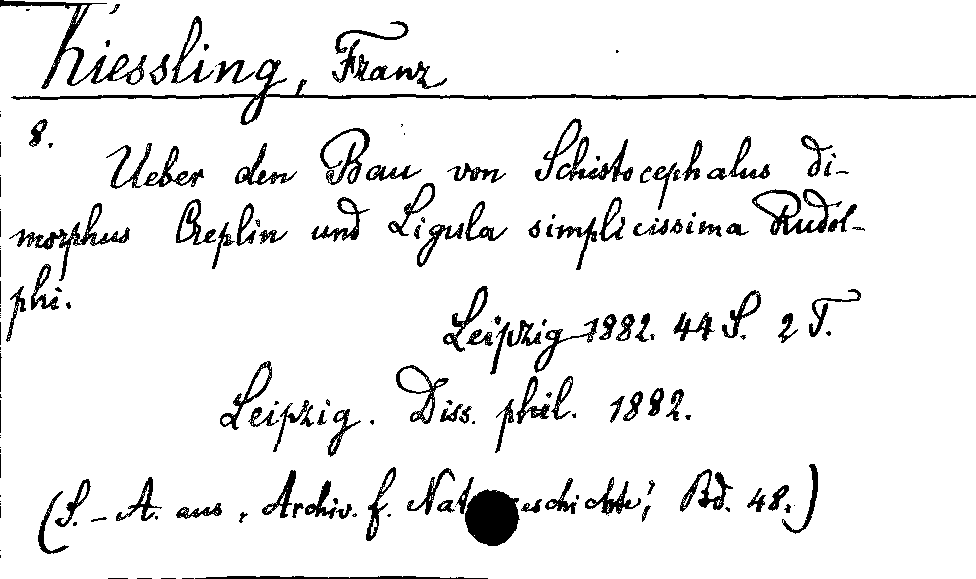 Kiessling, Franz
8.
Ueber den Bau von Schistocephalus di-
morphus Creplin und Ligula simplicissima Rudol-
phi.
Leipzig 1882. 44 S. 2 T.
Leipzig. Diss. phil. 1882.
(S.-A. aus, Archiv. f. Naturgeschichte', Bd. 48.)